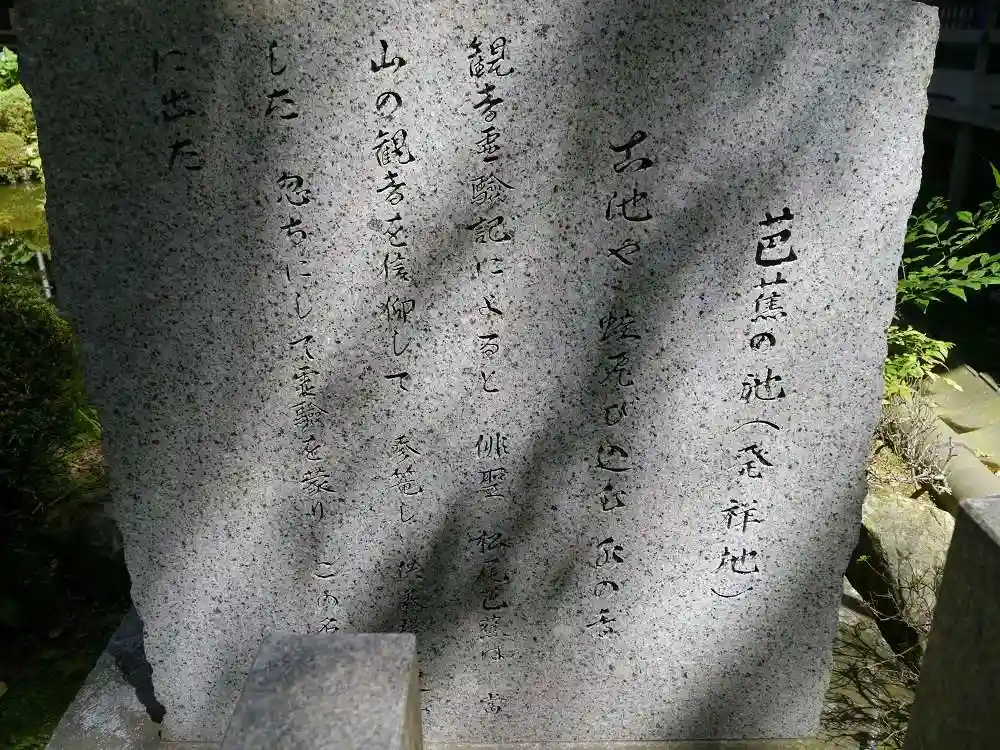 芭蕉の池(発祥地)
古池や 蛙飛び込む 水の音
観音霊験記によると 俳聖 松尾芭蕉は 当
山の観音を信仰して 参篭し 俳
した 忽ちにして霊験を蒙り この名
に出た